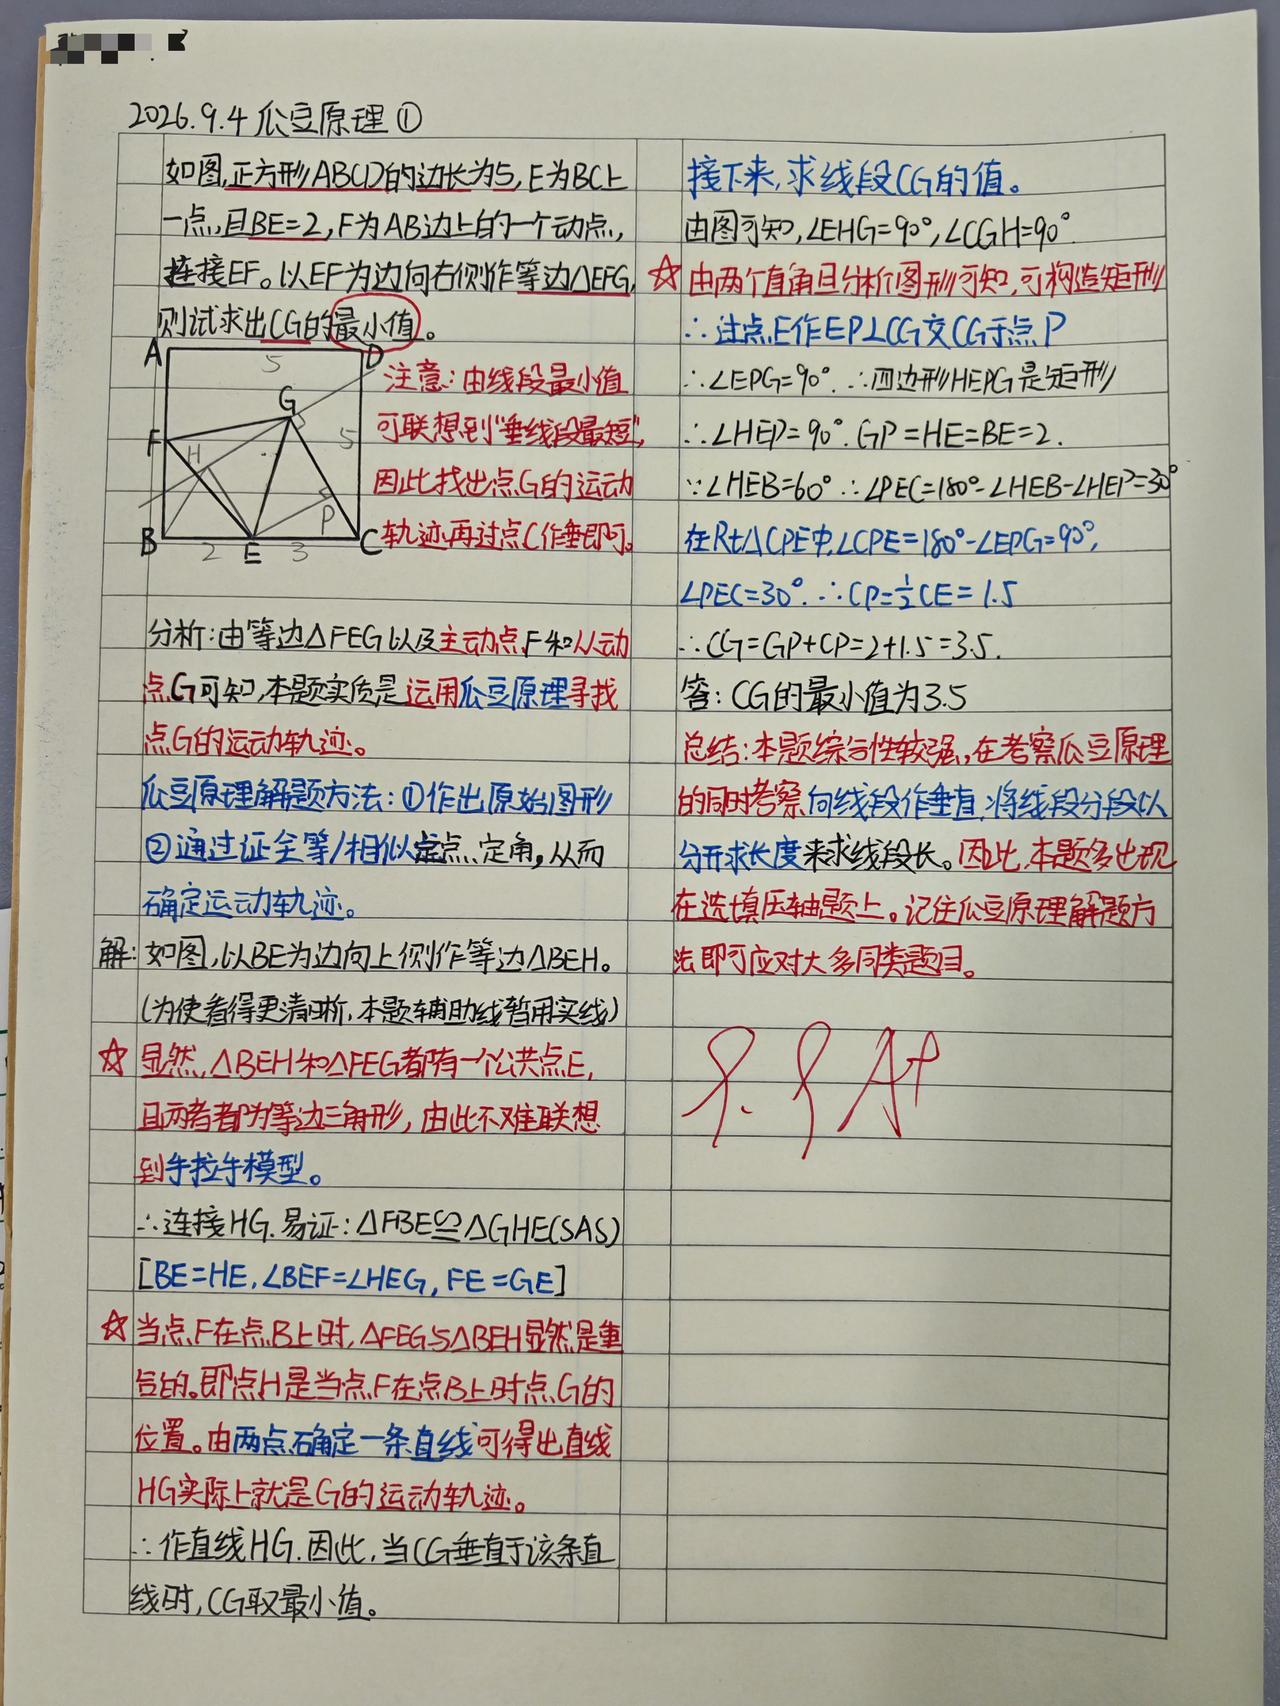 2026.9.4 瓜豆原理①
如图,正方形ABCD的边长为5,E为BC上
一点,且BE=2,F为AB边上的一个动点,
连接EF。以EF为边向右侧作等边△EFG,
则试求出CG的最小值。
A
D
5
G
F
H
5
P
B
2
E
3
C
注意:由线段最小值
可联想到“垂线段最短”,
因此找出点G的运动
轨迹,再过点C作垂即可。
分析:由等边△FEG以及主动点F和从动
点G可知,本题实质是运用瓜豆原理寻找
点G的运动轨迹。
瓜豆原理解题方法:①作出原始图形
②通过证全等/相似定点、定角,从而
确定运动轨迹。
解:如图,以BE为边向上侧作等边△BEH。
(为使看得更清晰,本题辅助线暂用实线)
☆显然,△BEH和△FEG都有一个公共点E,
且两者都为等边三角形,由此不难联想
到手拉手模型。
∴连接HG.易证:△FBE≌△GHE(SAS)
[BE=HE,∠BEF=∠HEG,FE=GE]
☆当点F在点B上时,△FEG与△BEH显然是重
合的。即点H是当点F在点B上时点G的
位置。由两点确定一条直线可得出直线
HG实际上就是G的运动轨迹。
∴作直线HG.因此,当CG垂直于该条直
线时,CG取最小值。
接下来,求线段CG的值。
由图可知,∠EHG=90°,∠CGH=90°
☆由两个直角且分析图形可知,可构造矩形
∴过点E作EP⊥CG交CG于点P
∴∠EPG=90°∴四边形HEPG是矩形
∴∠HEP=90°.GP=HE=BE=2.
∵∠HEB=60°∴∠PEC=180°-∠HEB-∠HEP=30°
在Rt△CPE中,∠CPE=180°-∠EPG=90°,
∠PEC=30°.∴CP=½CE=1.5
∴CG=GP+CP=2+1.5=3.5.
答:CG的最小值为3.5
总结:本题综合性较强,在考察瓜豆原理
的同时考察向线段作垂直,将线段分段以
分开求长度来求线段长。因此,本题多出现
在选填压轴题上。记住瓜豆原理解题方
法即可应对大多同类题目。
A+